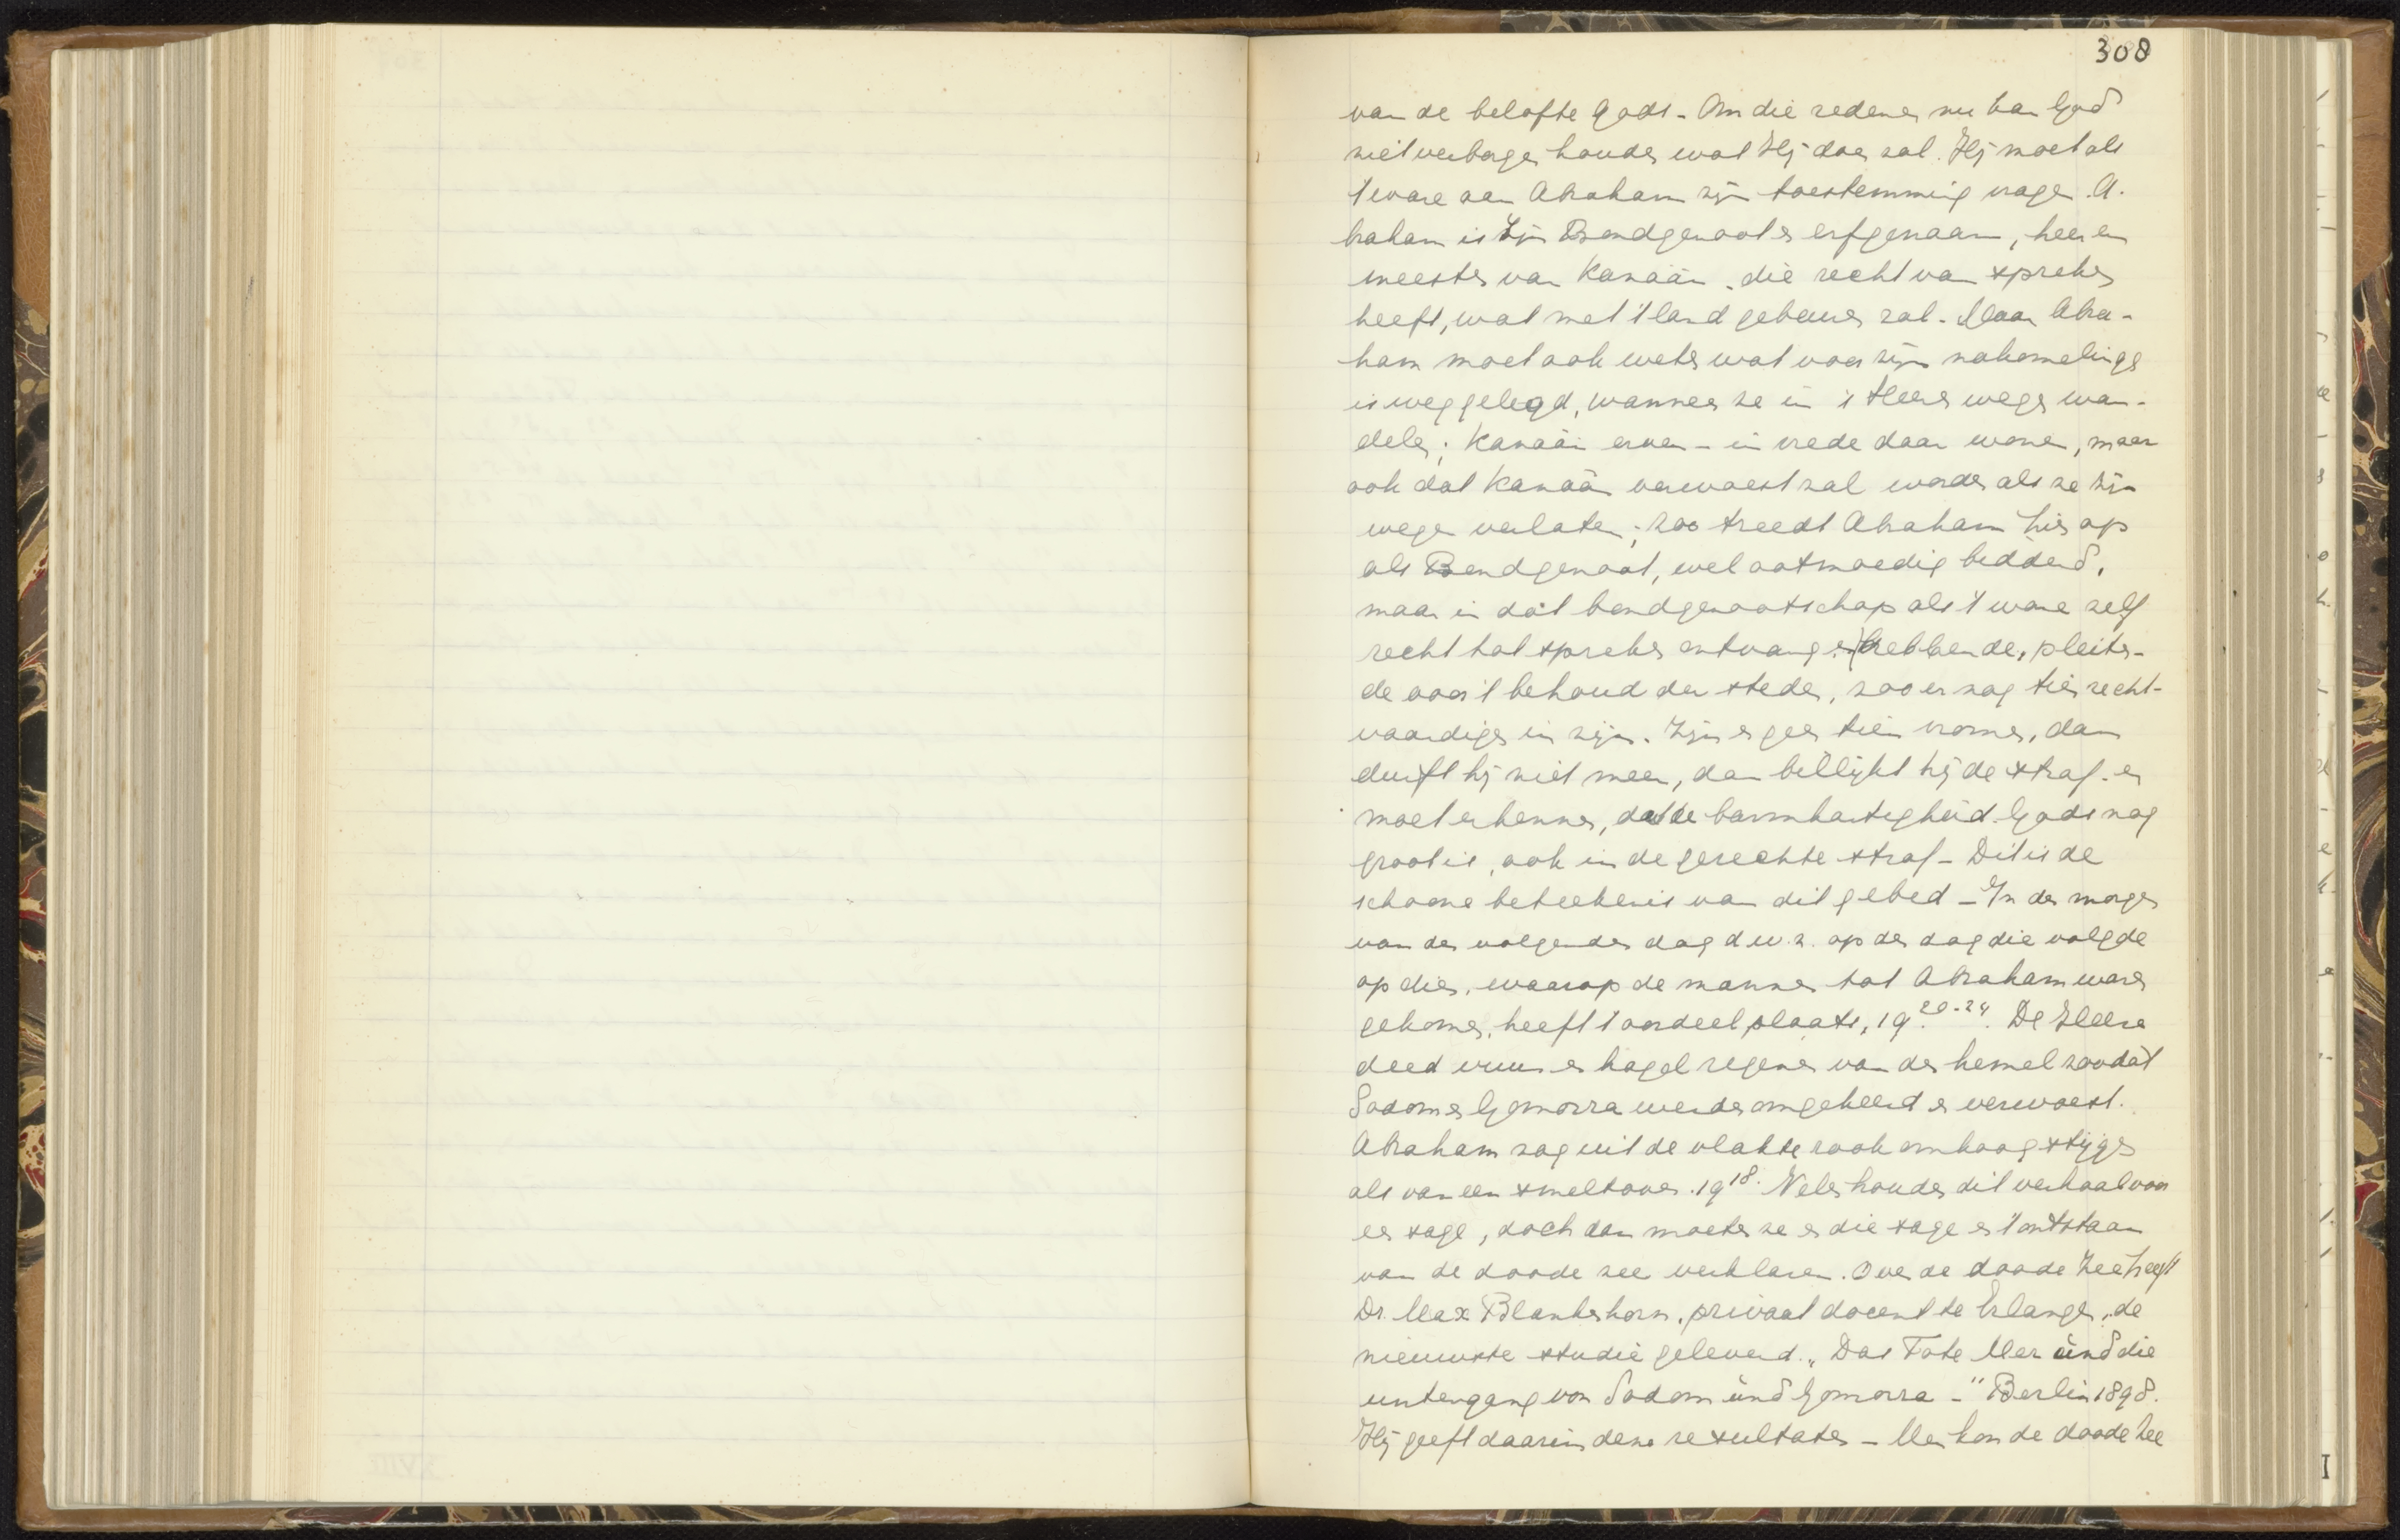 308
van de belofte Gods - Om die redenen nu kan God
niet verborgen houden wat Hij doen zal. Hij moet als
't ware aan Abraham zijn toestemming vragen. A-
braham is Zijn Bondgenoot en erfgenaam, heer en
meester van Kanaän, die recht van spreken
heeft, wat met 't land gebeuren zal - Maar Abra-
ham moet ook weten wat voor zijn nakomelingen
is weggelegd, wanneer ze in 's Heeren wegen wan-
delen; Kanaän erven - in vrede daar wonen, maar
ook dat Kanaän verwoest zal worden als ze Zijn
wegen verlaten; zoo treedt Abraham hier op
als Bondgenoot, wel ootmoedig biddend,
maar in dat bondgenootschap als 't ware zelf
recht tot spreken ontvangen hebbende, pleiten-
de voor 't behoud der steden, zoo er nog tien recht-
vaardigen in zijn. Zijn er geen tien vromen, dan
durft hij niet meer, dan billijkt hij de straf en
moet erkennen, dat de barmhartigheid Gods nog
groot is, ook in de gerechte straf - Dit is de
schoone beteekenis van dit gebed - In den morgen
van den volgenden dag d.w.z. op den dag die volgde
op dien, waarop de mannen tot Abraham waren
gekomen, heeft 't oordeel plaats, 19 20-24. De Heere
deed vuur en hagel regenen van den hemel zoodat
Sodom en Gomorra werden omgekeerd en verwoest.
Abraham zag uit de vlakte rook omhoog stijgen
als van een smeltoven. 19 18. Velen houden dit verhaal voor
een sage, doch dan moeten ze en die sage en 't ontstaan
van de doode zee verklaren. Over de doode Zee heeft
Dr. Max Blankenhorn, privaat docent te Erlangen, de
nieuwste studie geleverd. "Das Tote Mer ünd die
untergang von Sodom ünd Gomorra -" Berlin 1898.
Hij geeft daarin deze resultaten - Men kon de doode Zee